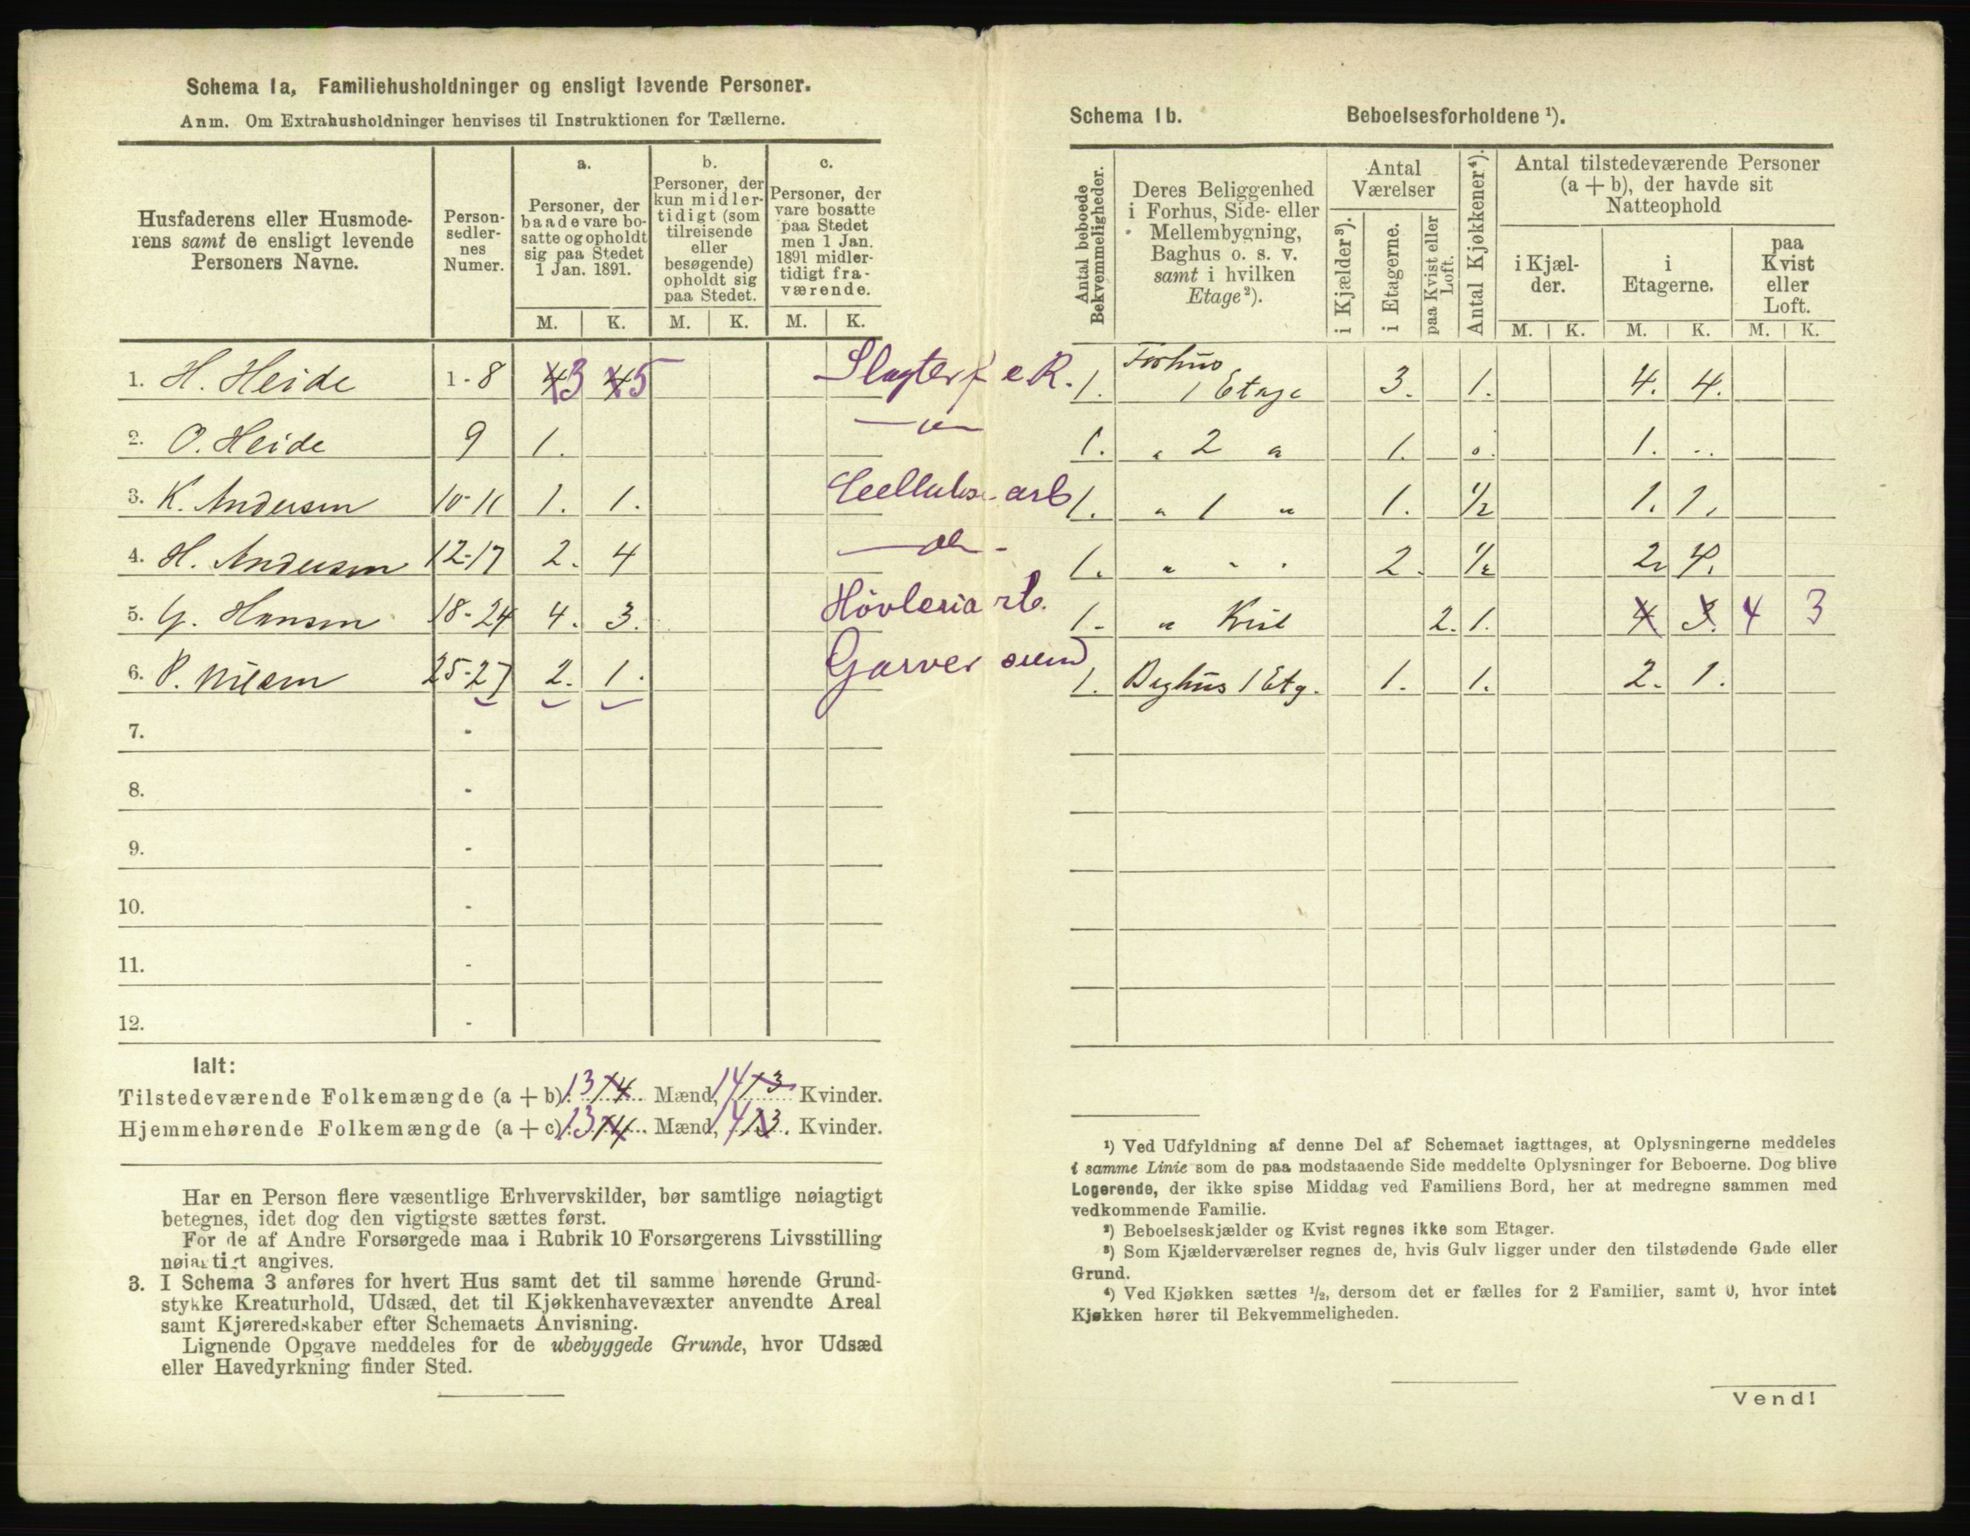 Schema 1a, Familiehusholdninger og ensligt levende Personer.
Anm. Om Extrahusholdninger henvises til Instruktionen for Tællerne.
Husfaderens eller Husmoderens samt de ensligt levende Personers Navne.
Personsedlernes Numer.
a. Personer, der baade vare bosatte og opholdt sig paa Stedet 1 Jan. 1891.
b. Personer, der kun midlertidigt (som tilreisende eller besøgende) opholdt sig paa Stedet.
c. Personer, der vare bosatte paa Stedet men 1 Jan. 1891 midlertidigt fraværende.
M. K. M. K. M. K.
1. H. Heide 1-8 4 3 4 5 Slagter f e R.
2. O. Heide 9 1.
3. K. Andersen 10-11 1. 1. Cellulose arb
4. H. Andersen 12-17 2. 4
5. G. Hansen 18-24 4. 3. Høvleriarb.
6. P. Nilsen 25-27 2. 1. Garversvend
7. -
8. -
9. -
10. -
11. -
12. -
Ialt:
Tilstedeværende Folkemængde (a + b). 13 14 Mænd, 14 13 Kvinder.
Hjemmehørende Folkemængde (a + c). 13 14 Mænd, 14 13 Kvinder.
Har en Person flere væsentlige Erhvervskilder, bør samtlige nøiagtigt
betegnes, idet dog den vigtigste sættes først.
For de af Andre Forsørgede maa i Rubrik 10 Forsørgerens Livsstilling
nøiagtigt angives.
3. I Schema 3 anføres for hvert Hus samt det til samme hørende Grund-
stykke Kreaturhold, Udsæd, det til Kjøkkenhavevæxter anvendte Areal
samt Kjøreredskaber efter Schemaets Anvisning.
Lignende Opgave meddeles for de ubebyggede Grunde, hvor Udsæd
eller Havedyrkning finder Sted.
Schema 1b. Beboelsesforholdene ¹).
Antal beboede Bekvemmeligheder.
Deres Beliggenhed i Forhus, Side- eller Mellembygning, Baghus o. s. v. samt i hvilken Etage²).
Antal Værelser
i Kjælder³).
i Etagerne.
paa Kvist eller Loft.
Antal Kjøkkener⁴).
Antal tilstedeværende Personer (a + b), der havde sit Natteophold
i Kjælder.
i Etagerne.
paa Kvist eller Loft.
M. K. M. K. M. K.
1. Forhus 1 Etage 3. 1. 4. 4.
1. " 2 " 1. 0. 1. ..
1. " 1 " 1. 1/2 1. 1.
1. " " " 2. 1/2 2. 4.
1. " Kvist 2. 1. 4 3. 4 3
1. Baghus 1 Etg. 1. 1. 2. 1.
¹) Ved Udfyldning af denne Del af Schemaet iagttages, at Oplysningerne meddeles
i samme Linie som de paa modstaaende Side meddelte Oplysninger for Beboerne. Dog blive
Logerende, der ikke spise Middag ved Familiens Bord, her at medregne sammen med
vedkommende Familie.
²) Beboelseskjælder og Kvist regnes ikke som Etager.
³) Som Kjælderværelser regnes de, hvis Gulv ligger under den tilstødende Gade eller
Grund.
⁴) Ved Kjøkken sættes ½, dersom det er fælles for 2 Familier, samt 0, hvor intet
Kjøkken hører til Bekvemmeligheden.
Vend!